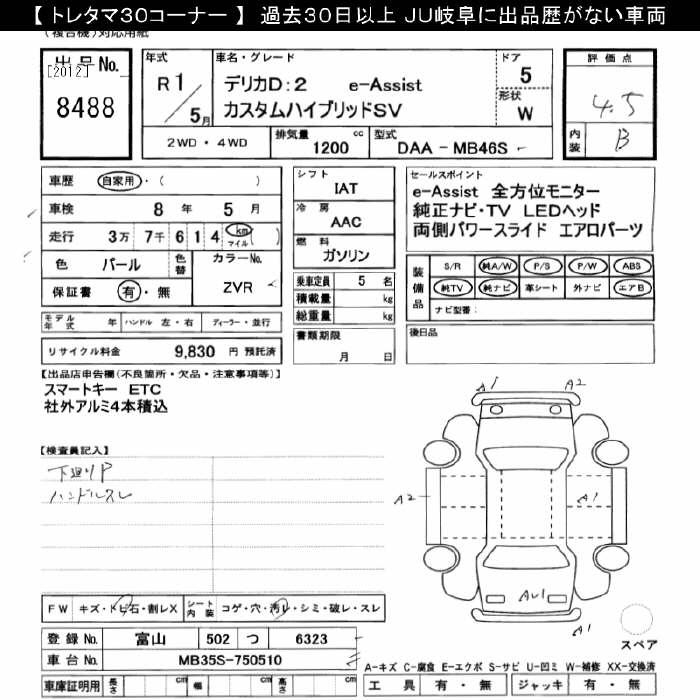 【 トレタマ30コーナー 】 過去30日以上 JU岐阜に出品歴がない車両
(複合機)対応用紙
出品No.
[2012]
8488
年式
R 1 / 5月
車名・グレード
デリカD:2 e-Assist
カスタムハイブリッドSV
ドア
5
形状
W
評価点
4.5
内装
B
2WD ・ 4WD
排気量 1200 cc
型式 DAA - MB46S
車歴 自家用・( )
車検 8 年 5 月
走行 3万 7千 6 1 4 km マイル ( )
色 パール 色替
カラーNo. ZVR
保証書 有・無
モデル年式 年 ハンドル 左・右 ディーラー・並行
リサイクル料金 9,830 円 預託済
シフト
IAT
冷房
AAC
燃料
ガソリン
乗車定員 5 名
積載量 kg
総重量 kg
書類期限
月 日
セールスポイント
e-Assist 全方位モニター
純正ナビ・TV LEDヘッド
両側パワースライド エアロパーツ
装備品
S/R 純A/W P/S P/W ABS
純TV 純ナビ 革シート 外ナビ エアB
ナビ型番:
後日品
【出品店申告欄(不良箇所・欠品・注意事項等)】
スマートキー ETC
社外アルミ4本積込
【検査員記入】
下廻りP
ハンドルスレ
A1 A2
A2 A1
AU1
A1
スペア
FW キズ・トビ石・割レX
シート内装 コゲ・穴・汚レ・シミ・破レ・スレ
登録 No. 富山 502 つ 6323
車台 No. MB35S-750510
車庫証明用 長さ cm 幅 cm 高さ cm
A-キズ C-腐食 E-エクボ S-サビ U-凹ミ W-補修 XX-交換済
工具 有・無 ジャッキ 有・無